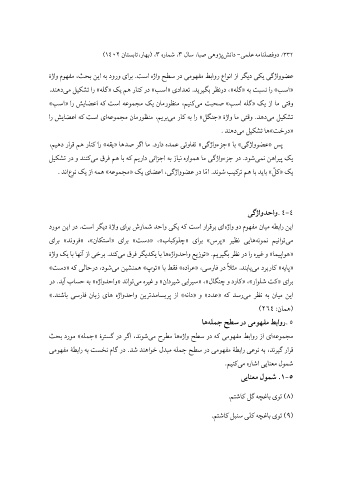 ۲۳۲/ دوفصلنامه علمی- دانش‌پژوهی صبا، سال ۳، شماره ۳، (بهار، تابستان ۱۴۰۲)
عضوواژگی یکی دیگر از انواع روابط مفهومی در سطح واژه است. برای ورود به این بحث، مفهوم واژۀ
«اسب» را نسبت به «گله»، درنظر بگیرید. تعدادی «اسب» در کنار هم یک «گله» را تشکیل می‌دهند.
وقتی ما از یک «گله اسب» صحبت می‌کنیم، منظورمان یک مجموعه است که اعضایش را «اسب»
تشکیل می‌دهد. وقتی ما واژۀ «جنگل» را به کار می‌بریم، منظورمان مجموعه‌ای است که اعضایش را
«درخت»ها تشکیل می‌دهند .
پس «عضوواژگی» با «جزءواژگی» تفاوتی عمده دارد. ما اگر صدها «یقه» را کنار هم قرار دهیم،
یک پیراهن نمی‌شود. در جزءواژگی ما همواره نیاز به اجزائی داریم که با هم فرق می‌کنند و در تشکیل
یک «کلّ» باید با هم ترکیب شوند. امّا در عضوواژگی، اعضای یک «مجموعه» همه از یک نوع‌اند .
۴-۴ .واحدواژگی
این رابطه میان مفهوم دو واژه‌ای برقرار است که یکی واحد شمارش برای واژۀ دیگر است. در این مورد
می‌توانیم نمونه‌هایی نظیر «پرس» برای «چلوکباب»، «دست» برای «استکان»، «فروند» برای
«هواپیما» و غیره را در نظر بگیریم. «توزیع واحدواژه‌ها با یکدیگر فرق می‌کند. برخی از آنها با یک واژۀ
«پایه» کاربرد می‌یابند. مثلاً در فارسی، «عراده» فقط با «توپ» همنشین می‌شود، درحالی که «دست»
برای «کت شلوار»، «کارد و چنگال»، «سیرابی شیردان» و غیره می‌تواند «واحدواژه» به حساب آید. در
این میان به نظر می‌رسد که «عدد» و «دانه» از پربسامدترین واحدواژه های زبان فارسی باشند.»
(همان: ۲۶۴)
۵ .روابط مفهومی در سطح جمله‌ها
مجموعه‌ای از روابط مفهومی که در سطح واژه‌ها مطرح می‌شوند، اگر در گسترۀ «جمله» مورد بحث
قرار گیرند، به نوعی رابطۀ مفهومی در سطح جمله مبدل خواهند شد. در گام نخست به رابطۀ مفهومی
شمول معنایی اشاره می‌کنیم.
۵-۱. شمول معنایی
(۸) توی باغچه گل کاشتم.
(۹) توی باغچه کلی سنبل کاشتم.